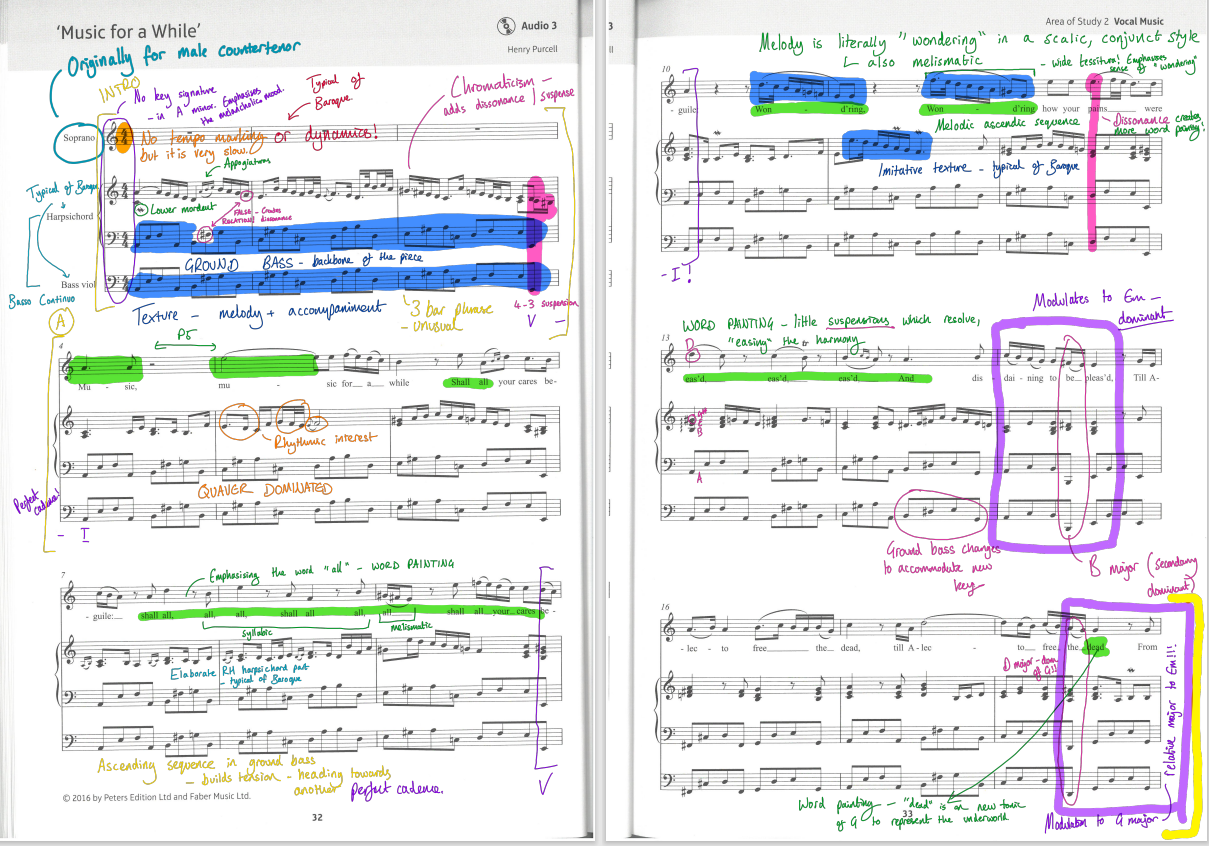 'Music for a While'
Audio 3
Henry Purcell
Originally for male countertenor
INTRO
No key signature
- in A minor. Emphasises
the melancholic mood.
Typical of
Baroque
Chromaticism -
adds dissonance / suspense
Soprano
No tempo marking or dynamics!
but it is very slow.
Appogiaturas
Typical of Baroque
Harpsichord
Lower mordent
FALSE - Creates
RELATION! dissonance
GROUND BASS - backbone of the piece
Bass viol
Basso Continuo
Texture - melody + accompaniment
3 bar phrase
- unusual
4-3 suspension
V -
A
P5
4
Mu - sic, mu - sic for a while Shall all your cares be-
Rhythmic interest
QUAVER DOMINATED
Perfect cadence!
- I
Emphasising the word "all" - WORD PAINTING
7
- guile: shall all, all, all, shall all all, all shall all your cares be -
syllabic
melismatic
Elaborate RH harpsichord part
- typical of Baroque
Ascending sequence in ground bass
- builds tension - heading towards
another perfect cadence.
V
© 2016 by Peters Edition Ltd and Faber Music Ltd.
32
3
Area of Study 2 Vocal Music
Melody is literally "wondering" in a scalic, conjunct style
also melismatic
- wide tessitura! Emphasises
sense of "wondering"
10
- guile Won - d'ring, Won - d'ring how your pains were
Melodic ascendic sequence
- Dissonance creates
more word painting!
Imitative texture - typical of Baroque
- I!
Modulates to Em -
dominant
WORD PAINTING - little suspensions which resolve,
"easing" the harmony
13
D
eas'd, eas'd, eas'd, And dis - dai - ning to be pleas'd, Till A-
G#
E
B
A
Ground bass changes
to accommodate new
key
B major (secondary
dominant)
16
- lec - to free the dead, till A - lec - to free the dead. From
D major - dom
of G!!
relative major to Em!!!
Word painting - "dead" is on new tonic
of G to represent the underworld
33
Modulation to G major